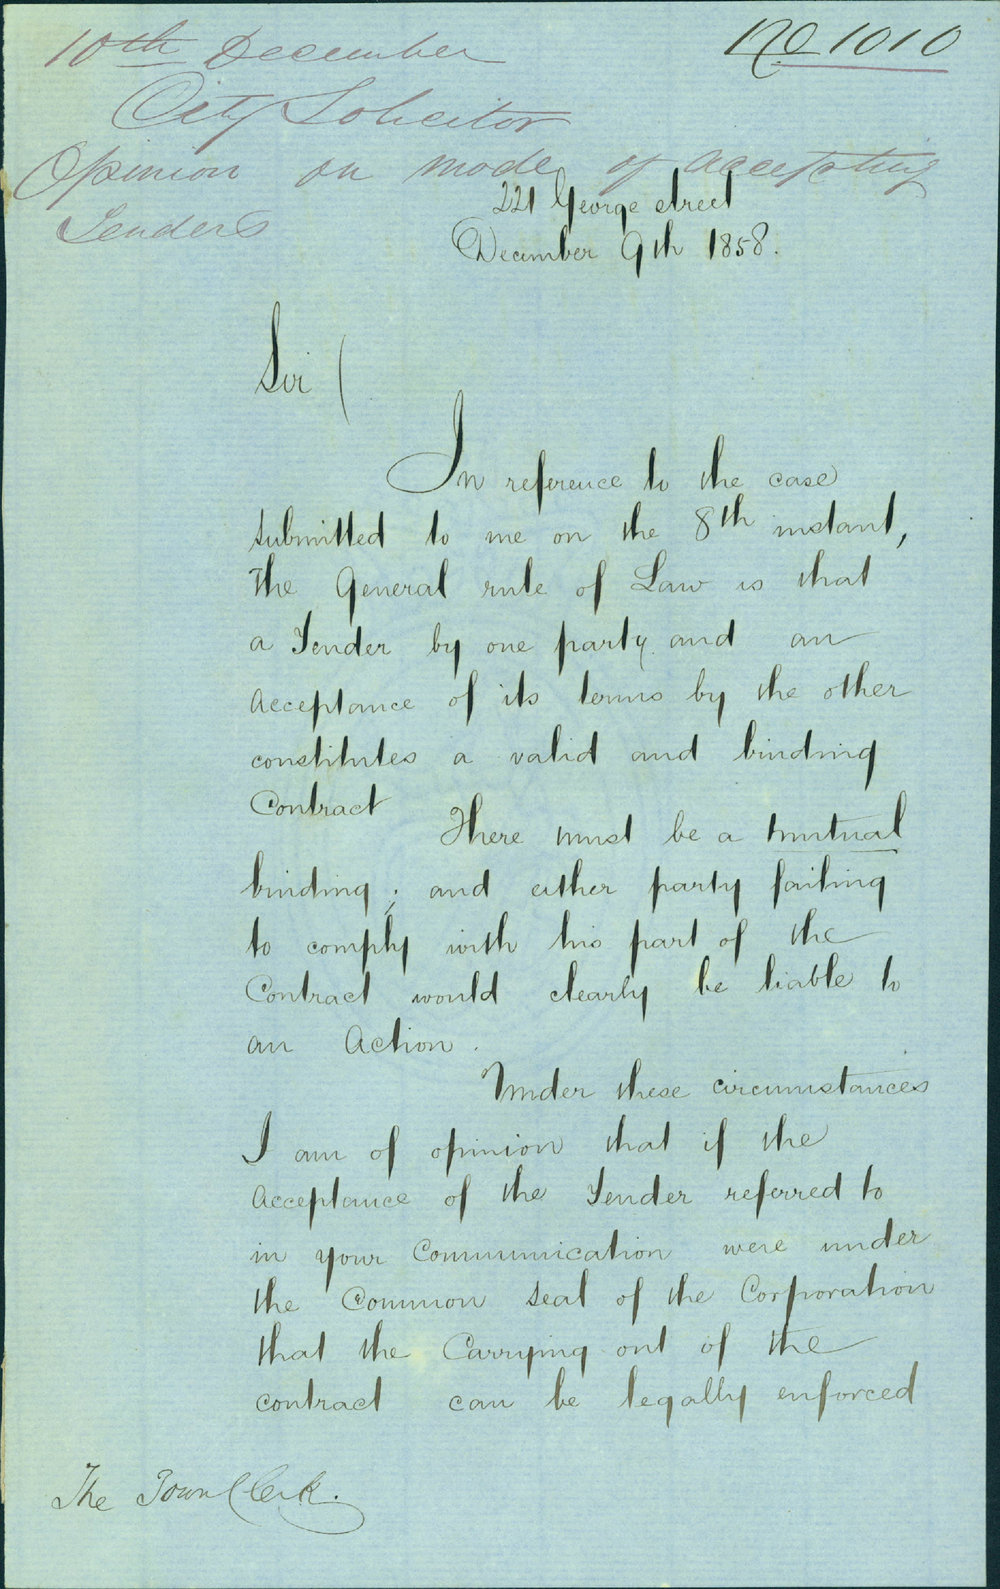 10th December
No 1010
City Solicitor
Opinion on mode of accepting
Tenders
221 George street
December 9th 1858.
Sir
In reference to the case
submitted to me on the 8th instant,
the General rule of Law is that
a Tender by one party and an
Acceptance of its terms by the other
constitutes a valid and binding
Contract
There must be a mutual
binding; and either party failing
to comply with his part of the
Contract would clearly be liable to
an Action.
Under these circumstances
I am of opinion that if the
Acceptance of the Tender referred to
in your Communication were under
the Common Seal of the Corporation
that the Carrying out of the
contract can be legally enforced
The Town Clerk.